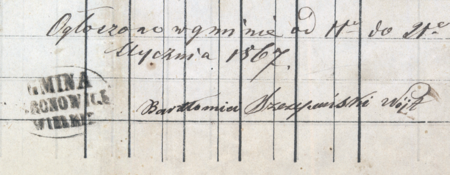 Ogłoszono w gminie od 11o do 21o
Stycznia 1867.
GMINA
BRONOWICE
WIELKIE
Bartłomiej Szczepański Wójt